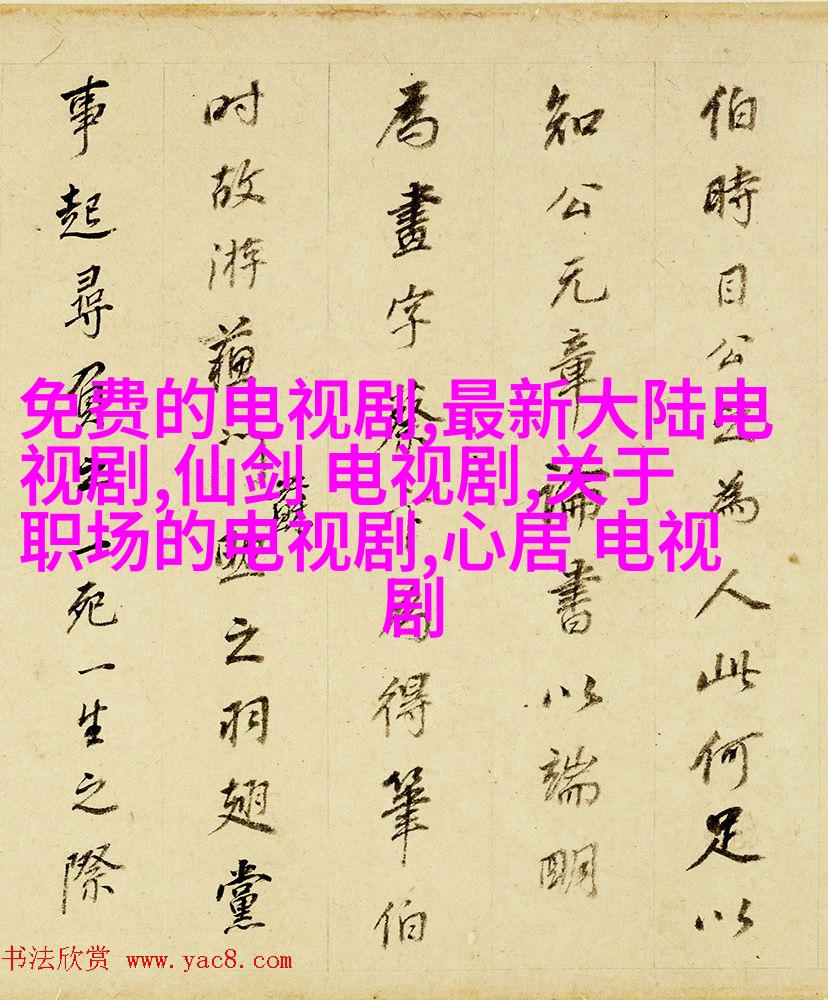 伯時目公之為人此何足以
知公元章論書以端明
為畫字蔡卞為得筆伯
时故游蘇以 之羽翅黨
事起尋負 一死一生之際
免费的电视剧,最新大陆电
视剧,仙剑 电视剧,关于
职场的电视剧,心居 电视
剧
书法欣赏 www.yac8.com